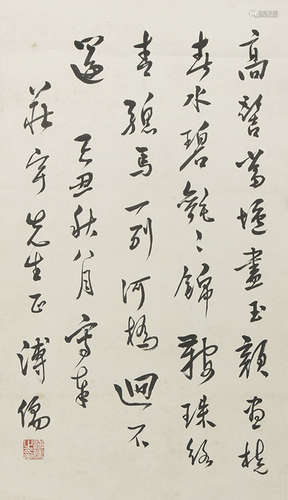 高髻當壚畫玉顏畫橈
春水碧錦鞍珠絡
青驄馬一別河橋迴不
還 丑秋八月寫奉
莊宇先生正 溥儒